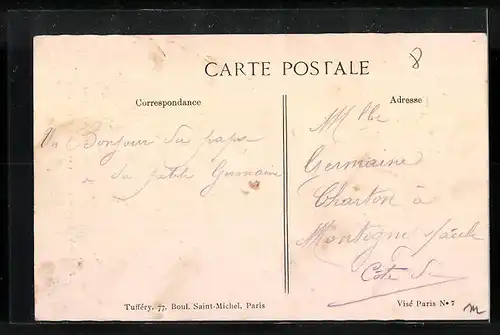 8
CARTE POSTALE
Correspondance
Adresse
Un Bonjour du papa
a sa petite Germaine
Mlle
Germaine
Charton à
Montigny
Côte d
Tufféry, 77, Boul. Saint-Michel, Paris
Visé Paris No 7